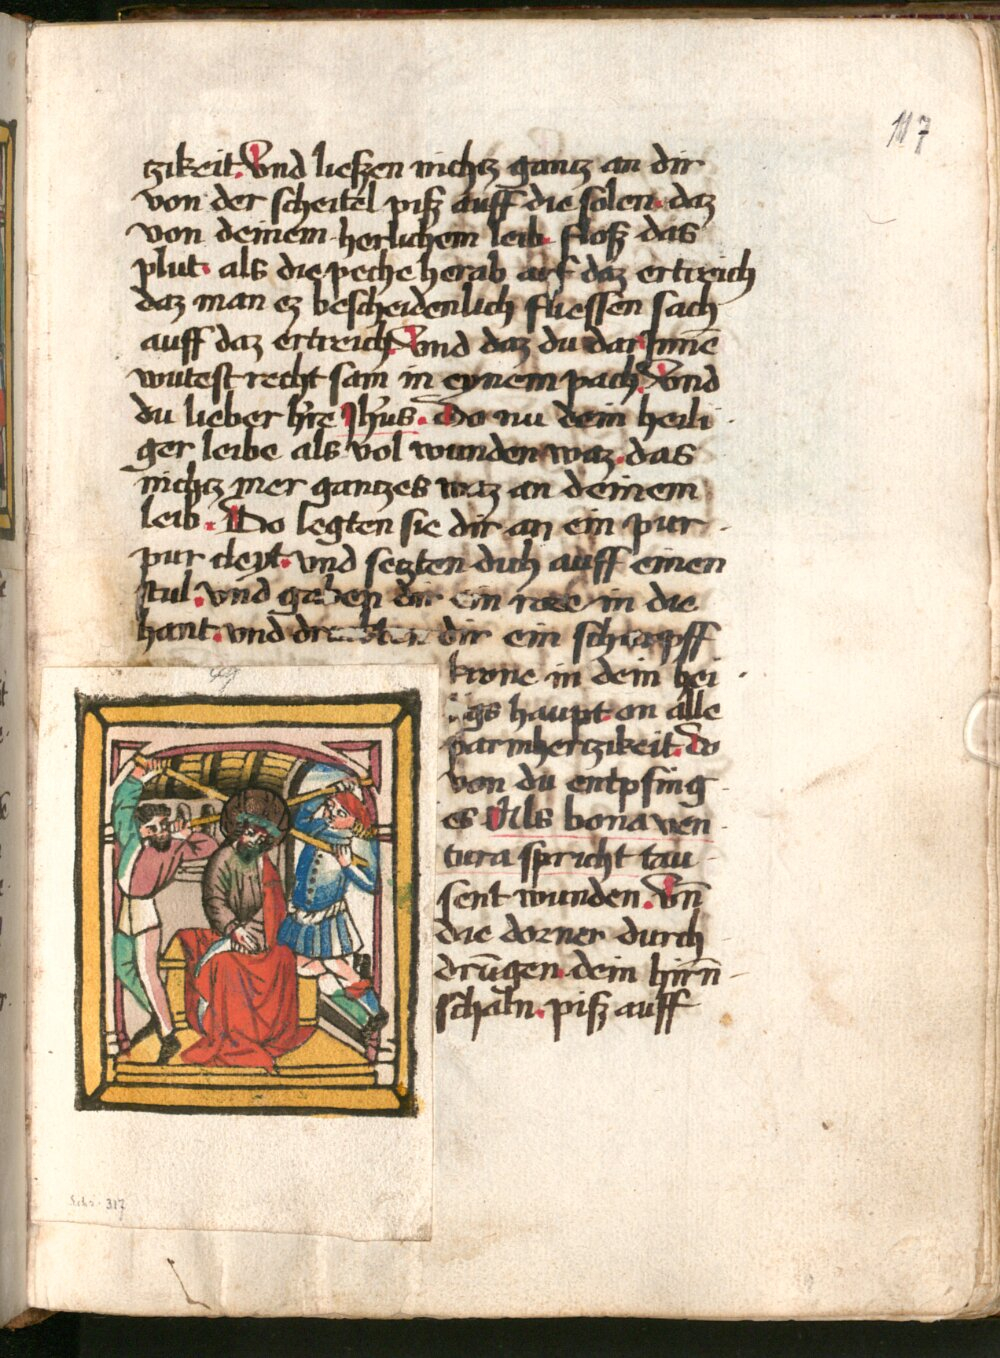 117
tzikeit. Vnd lieszen nichtz gantz an dir
von der scheitel pisz auff die solen. daz
von deinem herlichem leib. flosz das
plut. als die peche herab auf daz ertreich
daz man ez bescheidenlich fliessen sach
auff daz ertreich. Vnd daz du dar Inne̅
wutest recht sam in eynem pach. Vnd
du lieber hre Jhus. Do nu dein heili
ger leibe als vol wunden waz. das
nichtz mer gantzes waz an deinem
leib. Do legten sie dir an ein pur
pur cleyt. vnd setzten dich auff einen
stul. vnd gaben dir ein rore in die
hant. vnd dir ein scharpff
krone in dein hei
gs haupt. on alle
parmhertzikeit. Do
von du entpfing
es Als bonauen
tura spricht tau
sent wunden. Vn̅
die dorner durch
dru̅gen dein hirn̅
schaln. pisz auff
49
Schr. 317